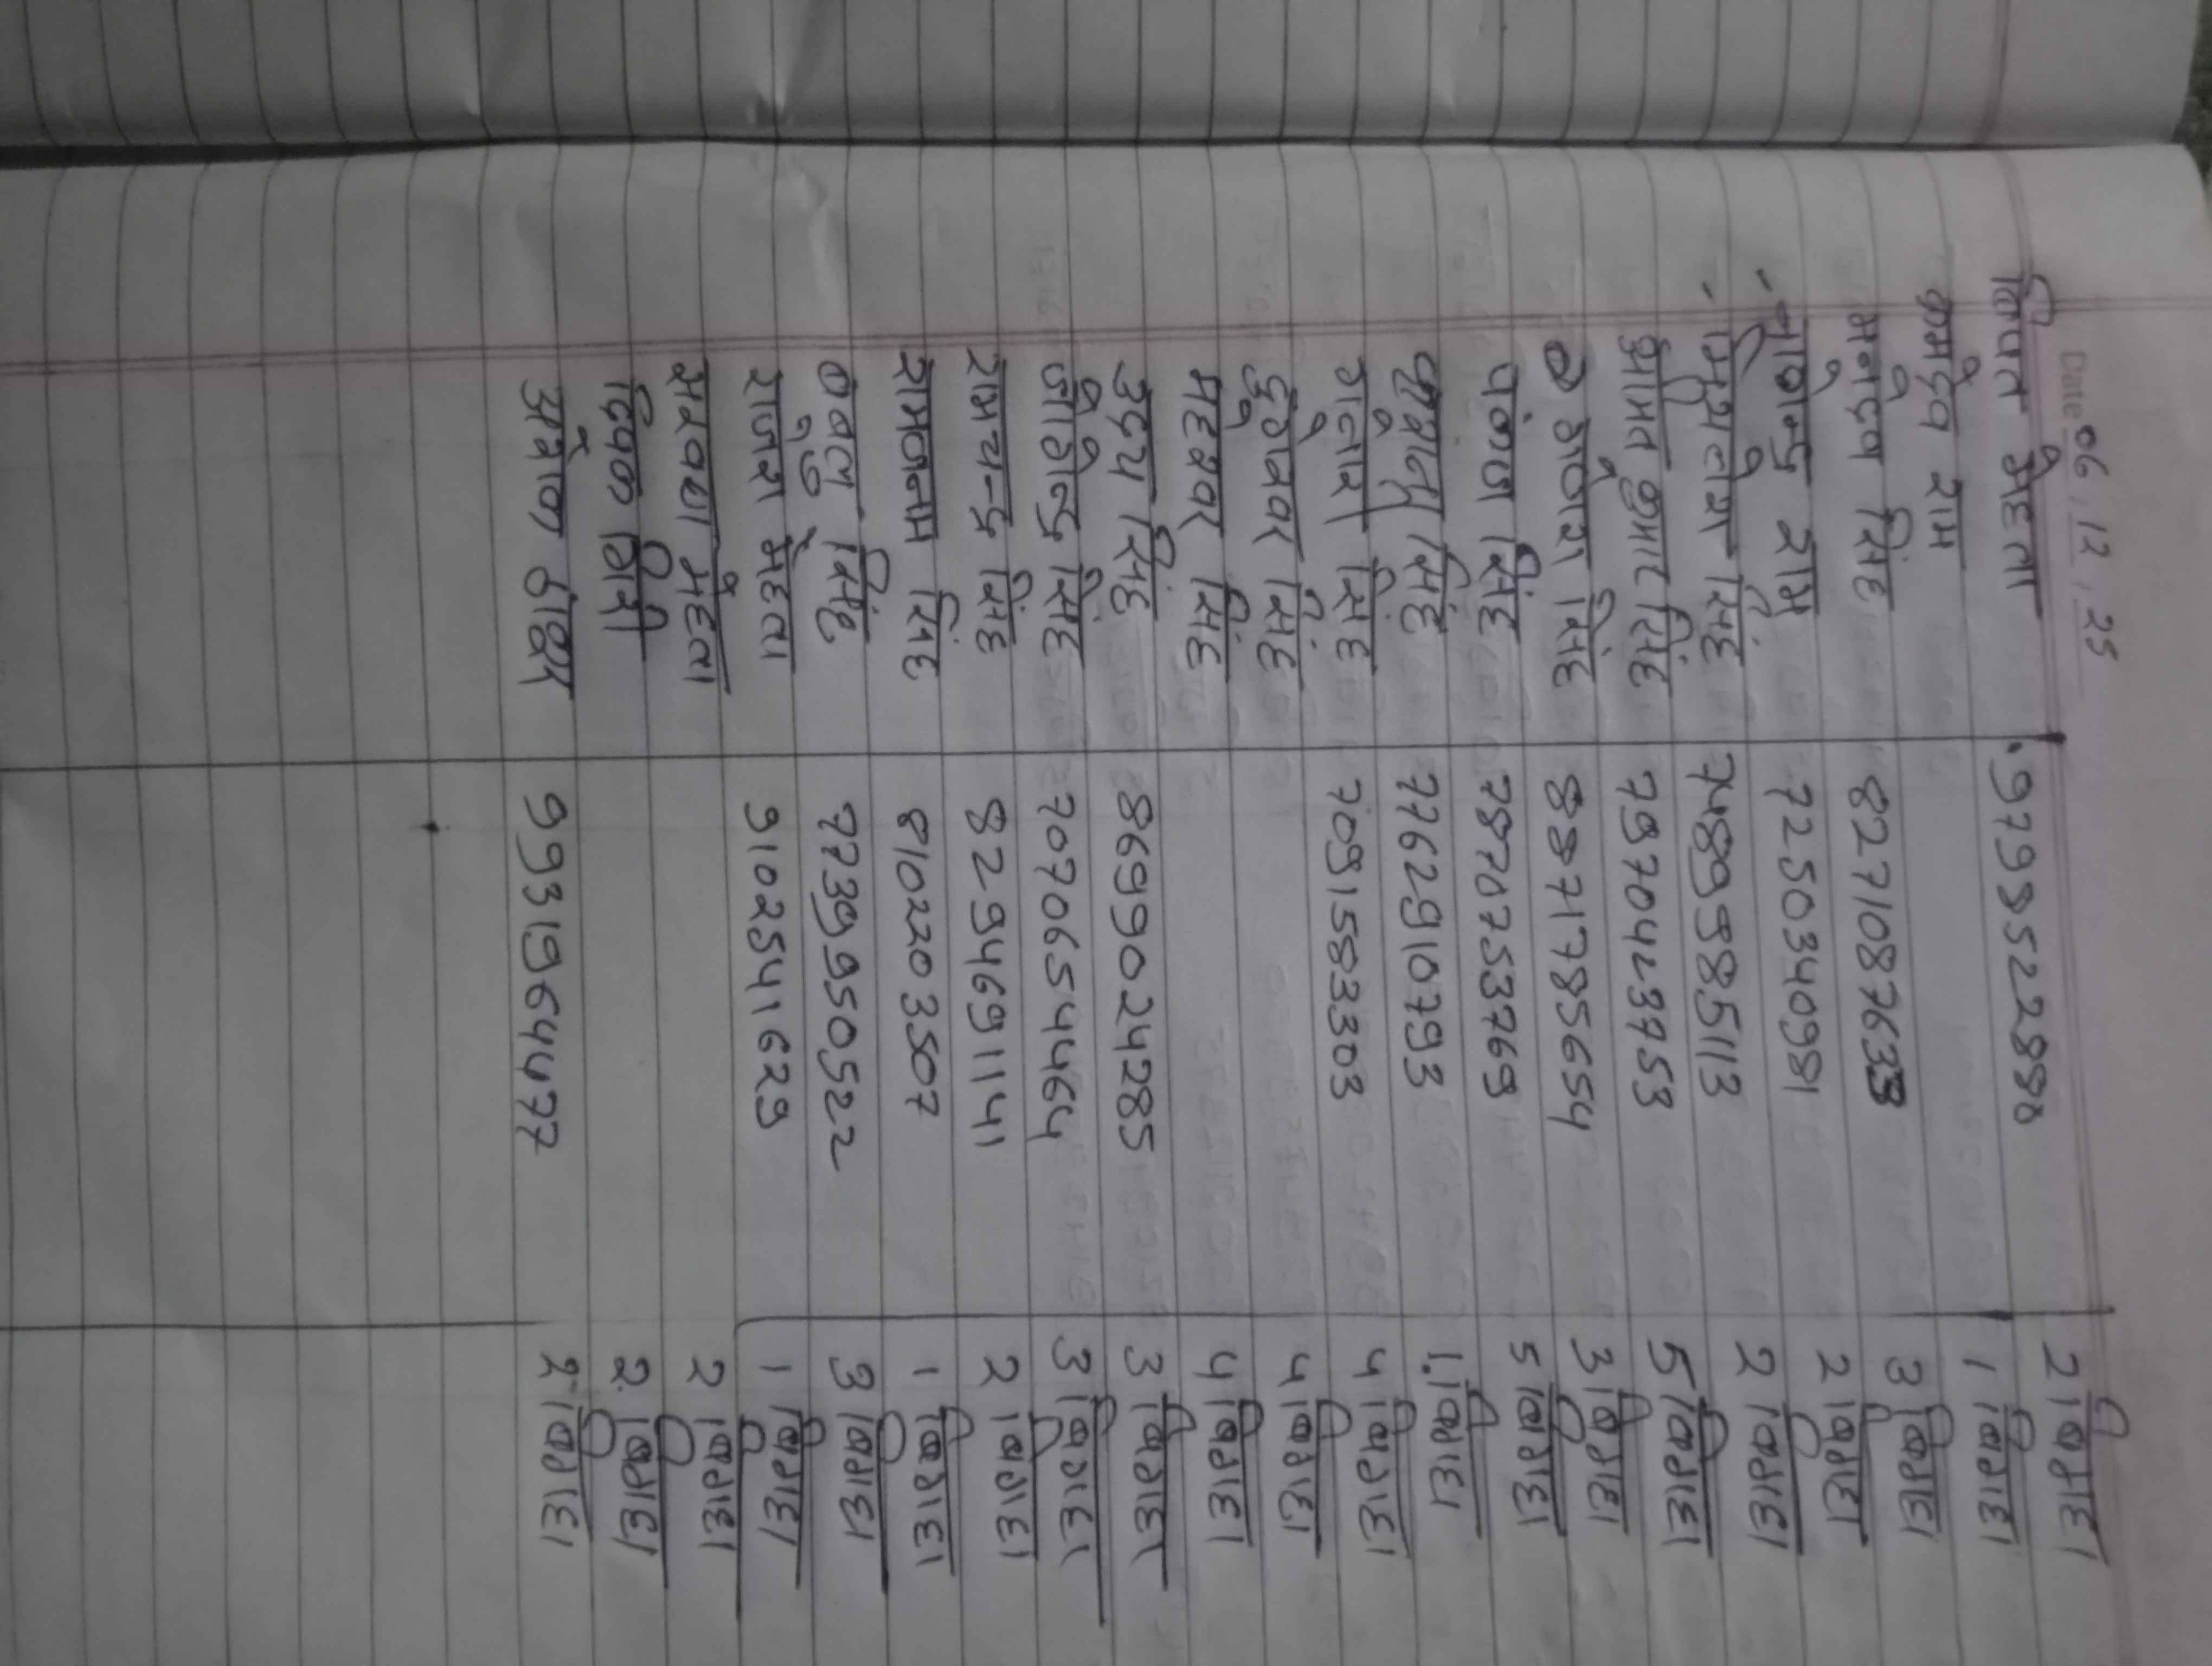 Date 06.12.25
विपत मेहता 9798522888 2 विगहा
कमदेव राम 1 विगहा
भनदेव सिंह 8271087633 3 विगहा
राजेन्द्र राम 7250340981 2 विगहा
सिंह 7489985113 2 विगहा
कुमार सिंह 7970423753 5 विगहा
सिंह 8871785654 3 विगहा
पंकज सिंह 7870753769 5 विगहा
सिंह 7762910793 1 विगहा
सिंह 7091583303 4 विगहा
सिंह 4 विगहा
महेश्वर सिंह 4 विगहा
उदय सिंह 8699024285 3 विगहा
जोगेन्द्र सिंह 7070654464 3 विगहा
रामचन्द्र सिंह 8294691141 2 विगहा
रामजनम सिंह 8102203507 1 विगहा
बबलु सिंह 7739950522 3 विगहा
राजेश मेहता 9102541629 1 विगहा
मेहता 2 विगहा
दिपक गिरी 2 विगहा
अशोक 9931964477 2 विगहा